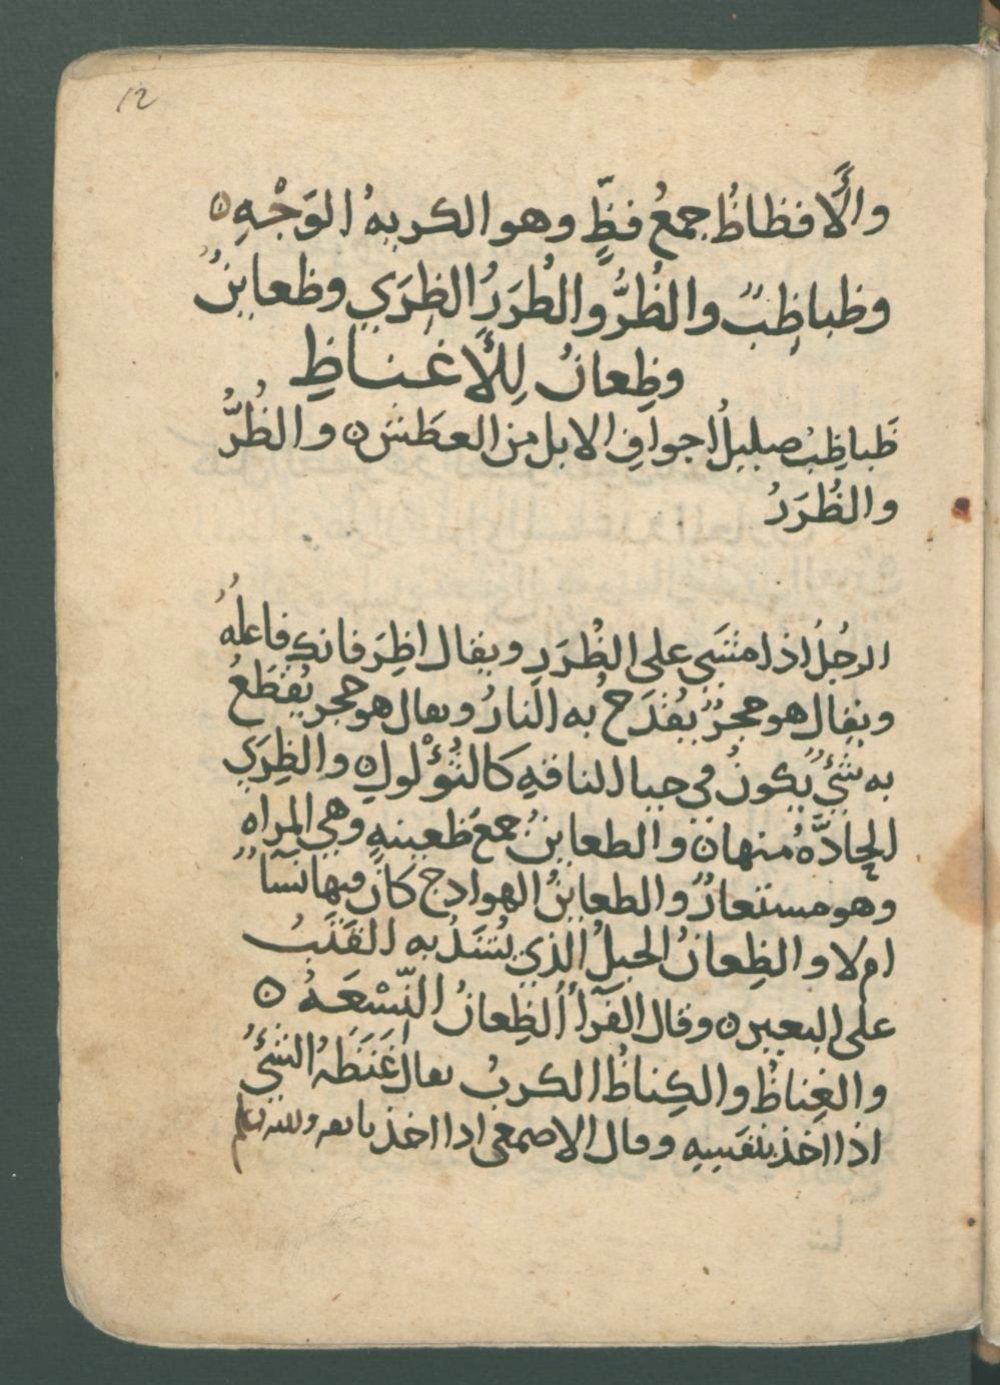 12
والأفظاظُ جمعُ فظٍّ وهو الكريهُ الوَجْهِ ه
وظباظِبٌ والظُرُّ والظُرَرُ الظِرَي وظعاينٌ
وظِعانٌ لِلأغنـاظِ
ظَباظِبُ صليلُ اجوافِ الابل من العطَش ه والظُرُّ
والظُرَرُ
الرجُلُ اذا مشَي على الظُرَرِ ويقال اظِرَ فانك فاعلهُ
ويقال هو حجرٌ يُقدَحُ به النارُ ويقال هو حجر يُقطَعُ
به شَيٌ يكونُ في حيا الناقهِ كالثُؤْلولِ ه والظِرَي
الحادَّهُ منها ه والظعاينُ جمعُ ظعينهٍ وهي المراه
وهو مستعارٌ والظعاينُ الهوادج كان فيها نسآءٌ
ام لا والظِعانُ الحبلُ الذي يُشَدُ به القَتَبُ
على البعير ه وقال الفرآءُ الظِعانُ النِّسْعَـهُ ه
والغِناظُ والكِناظُ الكربُ يقال غَنَظهُ الشيُ
اذا اخذ بنفسِهِ وقال الاصمعي اذا اخذ والله اعلم